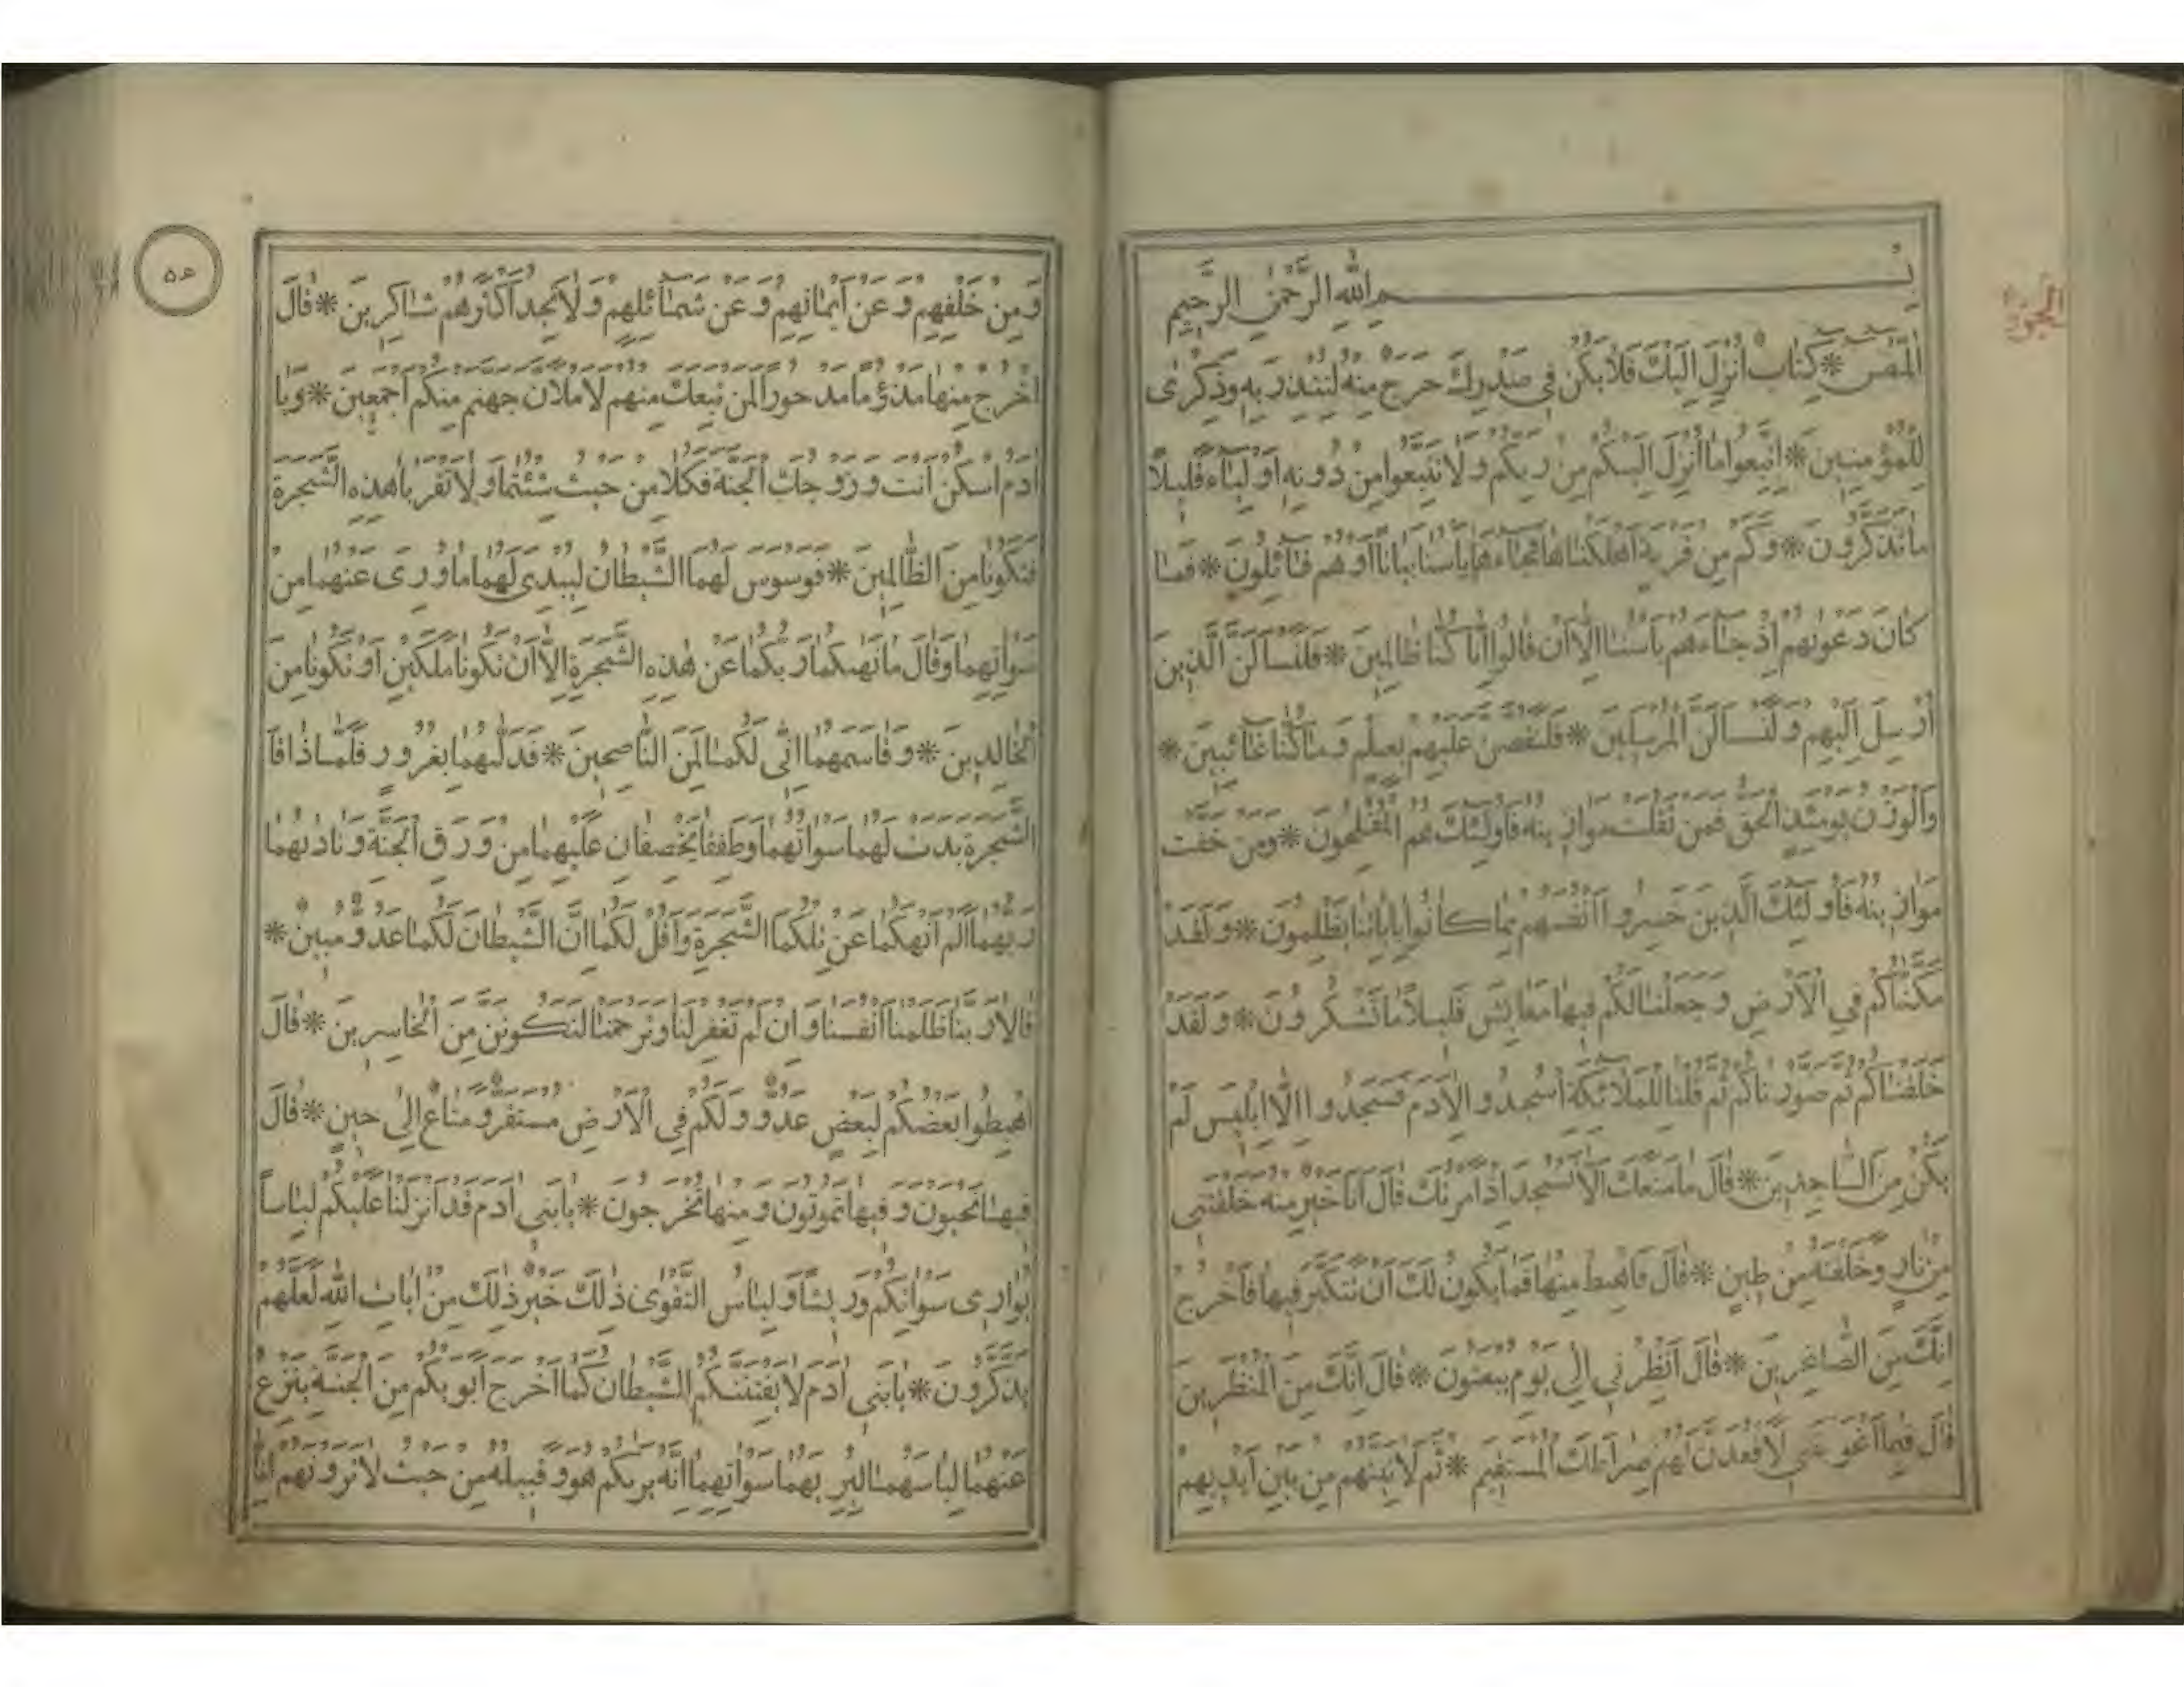 بسم الله الرحمن الرحيم
المص * كتاب انزل اليك فلا يكن في صدرك حرج منه لتنذر به وذكرى
للمؤمنين * اتبعوا ما انزل اليكم من ربكم ولا تتبعوا من دونه اولياء قليلا
ما تذكرون * وكم من قرية اهلكناها فجاءها باسنا بياتا او هم قائلون * فما
كان دعوىهم اذ جاءهم باسنا الا ان قالوا انا كنا ظالمين * فلنسالن الذين
ارسل اليهم ولنسالن المرسلين * فلنقصن عليهم بعلم وما كنا غائبين *
والوزن يومئذ الحق فمن ثقلت موازينه فاولئك هم المفلحون * ومن خفت
موازينه فاولئك الذين خسروا انفسهم بما كانوا باياتنا يظلمون * ولقد
مكناكم في الارض وجعلنا لكم فيها معايش قليلا ما تشكرون * ولقد
خلقناكم ثم صورناكم ثم قلنا للملائكة اسجدوا لادم فسجدوا الا ابليس لم
يكن من الساجدين * قال ما منعك الا تسجد اذ امرتك قال انا خير منه خلقتني
من نار وخلقته من طين * قال فاهبط منها فما يكون لك ان تتكبر فيها فاخرج
انك من الصاغرين * قال انظرني الى يوم يبعثون * قال انك من المنظرين
قال فبما اغويتني لاقعدن لهم صراطك المستقيم * ثم لاتينهم من بين ايديهم
ومن خلفهم وعن ايمانهم وعن شمائلهم ولا تجد اكثرهم شاكرين * قال
اخرج منها مذؤما مدحورا لمن تبعك منهم لاملان جهنم منكم اجمعين * ويا
ادم اسكن انت وزوجك الجنة فكلا من حيث شئتما ولا تقربا هذه الشجرة
فتكونا من الظالمين * فوسوس لهما الشيطان ليبدي لهما ما ووري عنهما من
سواتهما وقال ما نهىكما ربكما عن هذه الشجرة الا ان تكونا ملكين او تكونا من
الخالدين * وقاسمهما اني لكما لمن الناصحين * فدلىهما بغرور فلما ذاقا
الشجرة بدت لهما سواتهما وطفقا يخصفان عليهما من ورق الجنة ونادىهما
ربهما الم انهكما عن تلكما الشجرة واقل لكما ان الشيطان لكما عدو مبين *
قالا ربنا ظلمنا انفسنا وان لم تغفر لنا وترحمنا لنكونن من الخاسرين * قال
اهبطوا بعضكم لبعض عدو ولكم في الارض مستقر ومتاع الى حين * قال
فيها تحيون وفيها تموتون ومنها تخرجون * يا بني ادم قد انزلنا عليكم لباسا
يواري سواتكم وريشا ولباس التقوى ذلك خير ذلك من ايات الله لعلهم
يذكرون * يا بني ادم لا يفتننكم الشيطان كما اخرج ابويكم من الجنة ينزع
عنهما لباسهما ليريهما سواتهما انه يريكم هو وقبيله من حيث لا ترونهم انا